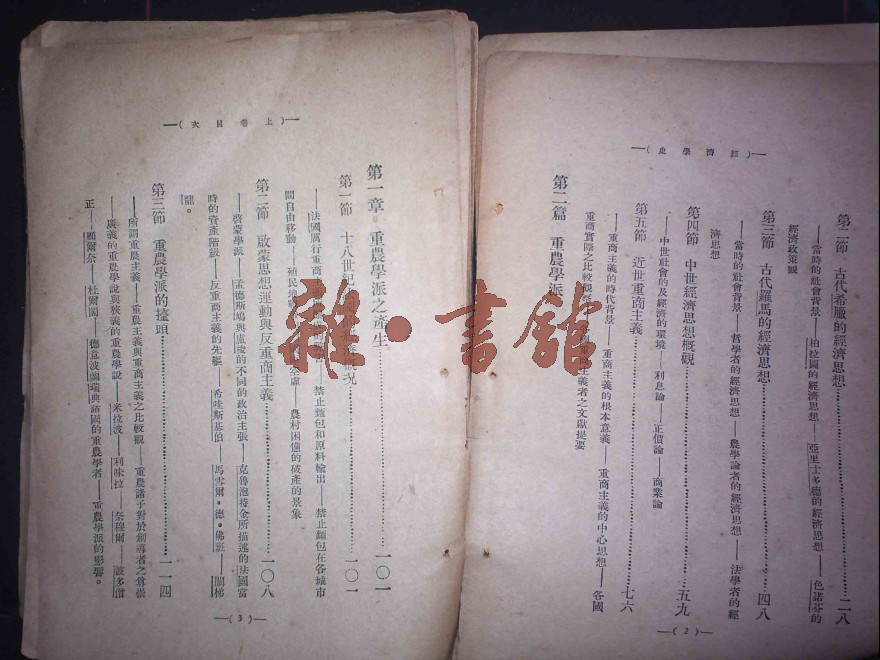 —(經濟學史)—
第二節 古代希臘的經濟思想……二八
——當時的社會背景——柏拉圖的經濟思想——亞里士多德的經濟思想——色諾芬的
經濟政策觀
第三節 古代羅馬的經濟思想……四八
——當時的社會背景——哲學者的經濟思想——農學論者的經濟思想——法學者的經
濟思想
第四節 中世經濟思想概觀……五九
——中世社會的及經濟的環境——利息論——正價論——商業論
第五節 近世重商主義……七六
——重商主義的時代背景——重商主義的根本意義——重商主義的中心思想——各國
重商實際之比較觀 重商主義者之文獻提要
第二篇 重農學派
—(2)—
—(上卷目次)—
第一章 重農學派之產生……一〇一
第一節 十八世紀 概況……一〇一
——法國厲行重商 ——禁止麵包和原料輸出——禁止麵包在各城市
間自由移動——殖民地 ——農村困憊的破產的景象
第二節 啟蒙思想運動與反重商主義……一〇八
——啓蒙學派——孟德斯鳩與盧梭的不同的政治主張——克魯泡特金所描述的法國當
時的資產階級——反重商主義的先驅——希哇斯基伯——馬雪爾·德·佛班——
第三節 重農學派的擡頭……一一四
——所謂重農主義——重農主義與重商主義之比較觀——重農諸子對於創導者之尊崇
——廣義的重農學說與狹義的重農學說——米拉波——利味拉——奈穆爾——波多
正——顧爾奈——杜爾閣——德意波蘭瑞典諸國的重農學者——重農學派的影響。
—(3)—
雜·書館